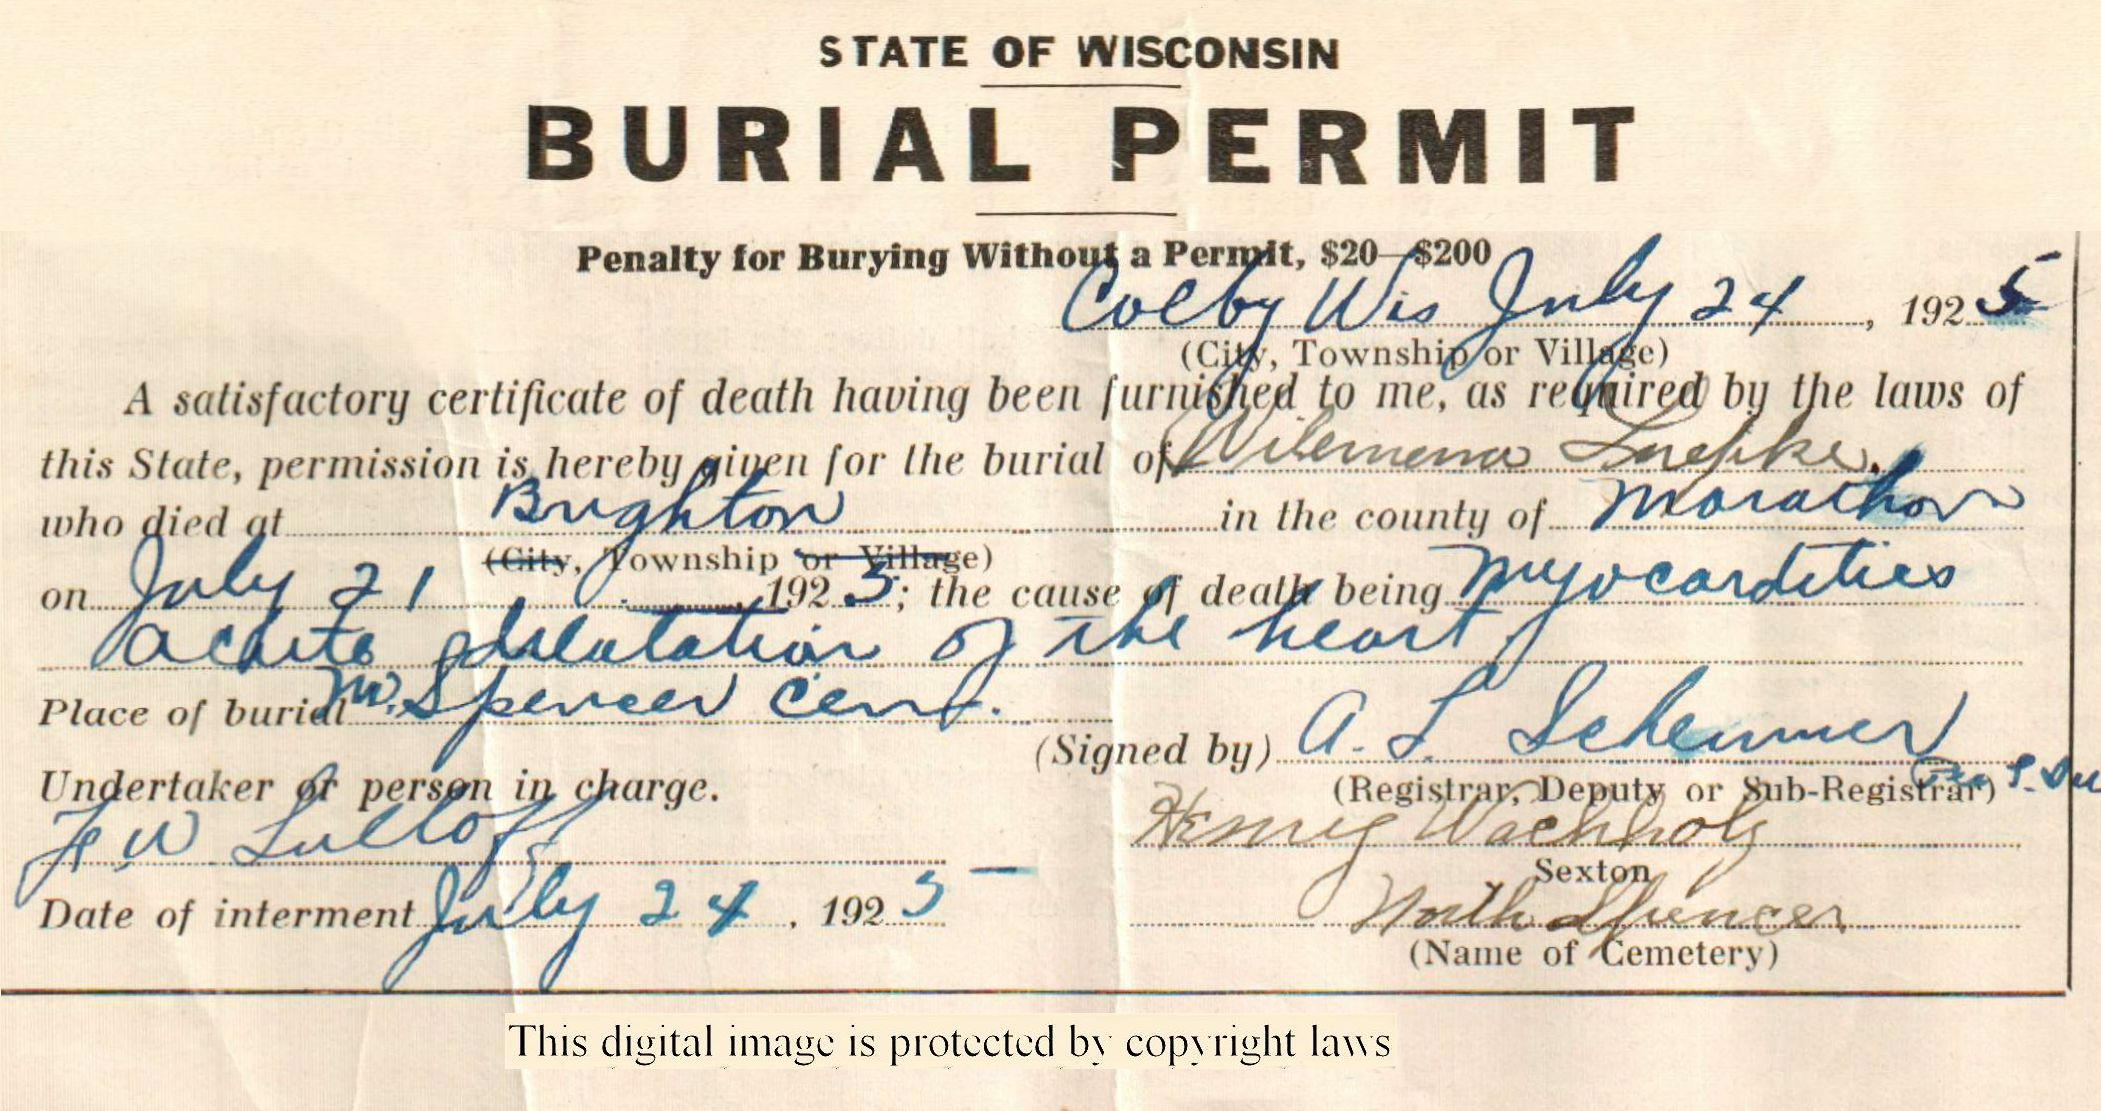 STATE OF WISCONSIN
BURIAL PERMIT
Penalty for Burying Without a Permit, $20—$200
Colby Wis July 24, 1925
(City, Township or Village)
A satisfactory certificate of death having been furnished to me, as required by the laws of
this State, permission is hereby given for the burial of Wilemena Luepke.
who died at Brighton in the county of Marathon
(City, Township or Village)
on July 21, 1925; the cause of death being Myocardities
acute dilutation of the heart
Place of burial N. Spencer Cem.
(Signed by) A. L. Schemmer
Undertaker or person in charge.
(Registrar, Deputy or Sub-Registrar)
F W Lulloff
Henry Wachholz
Sexton
Date of interment July 24, 1925
North Spencer
(Name of Cemetery)
This digital image is protected by copyright laws